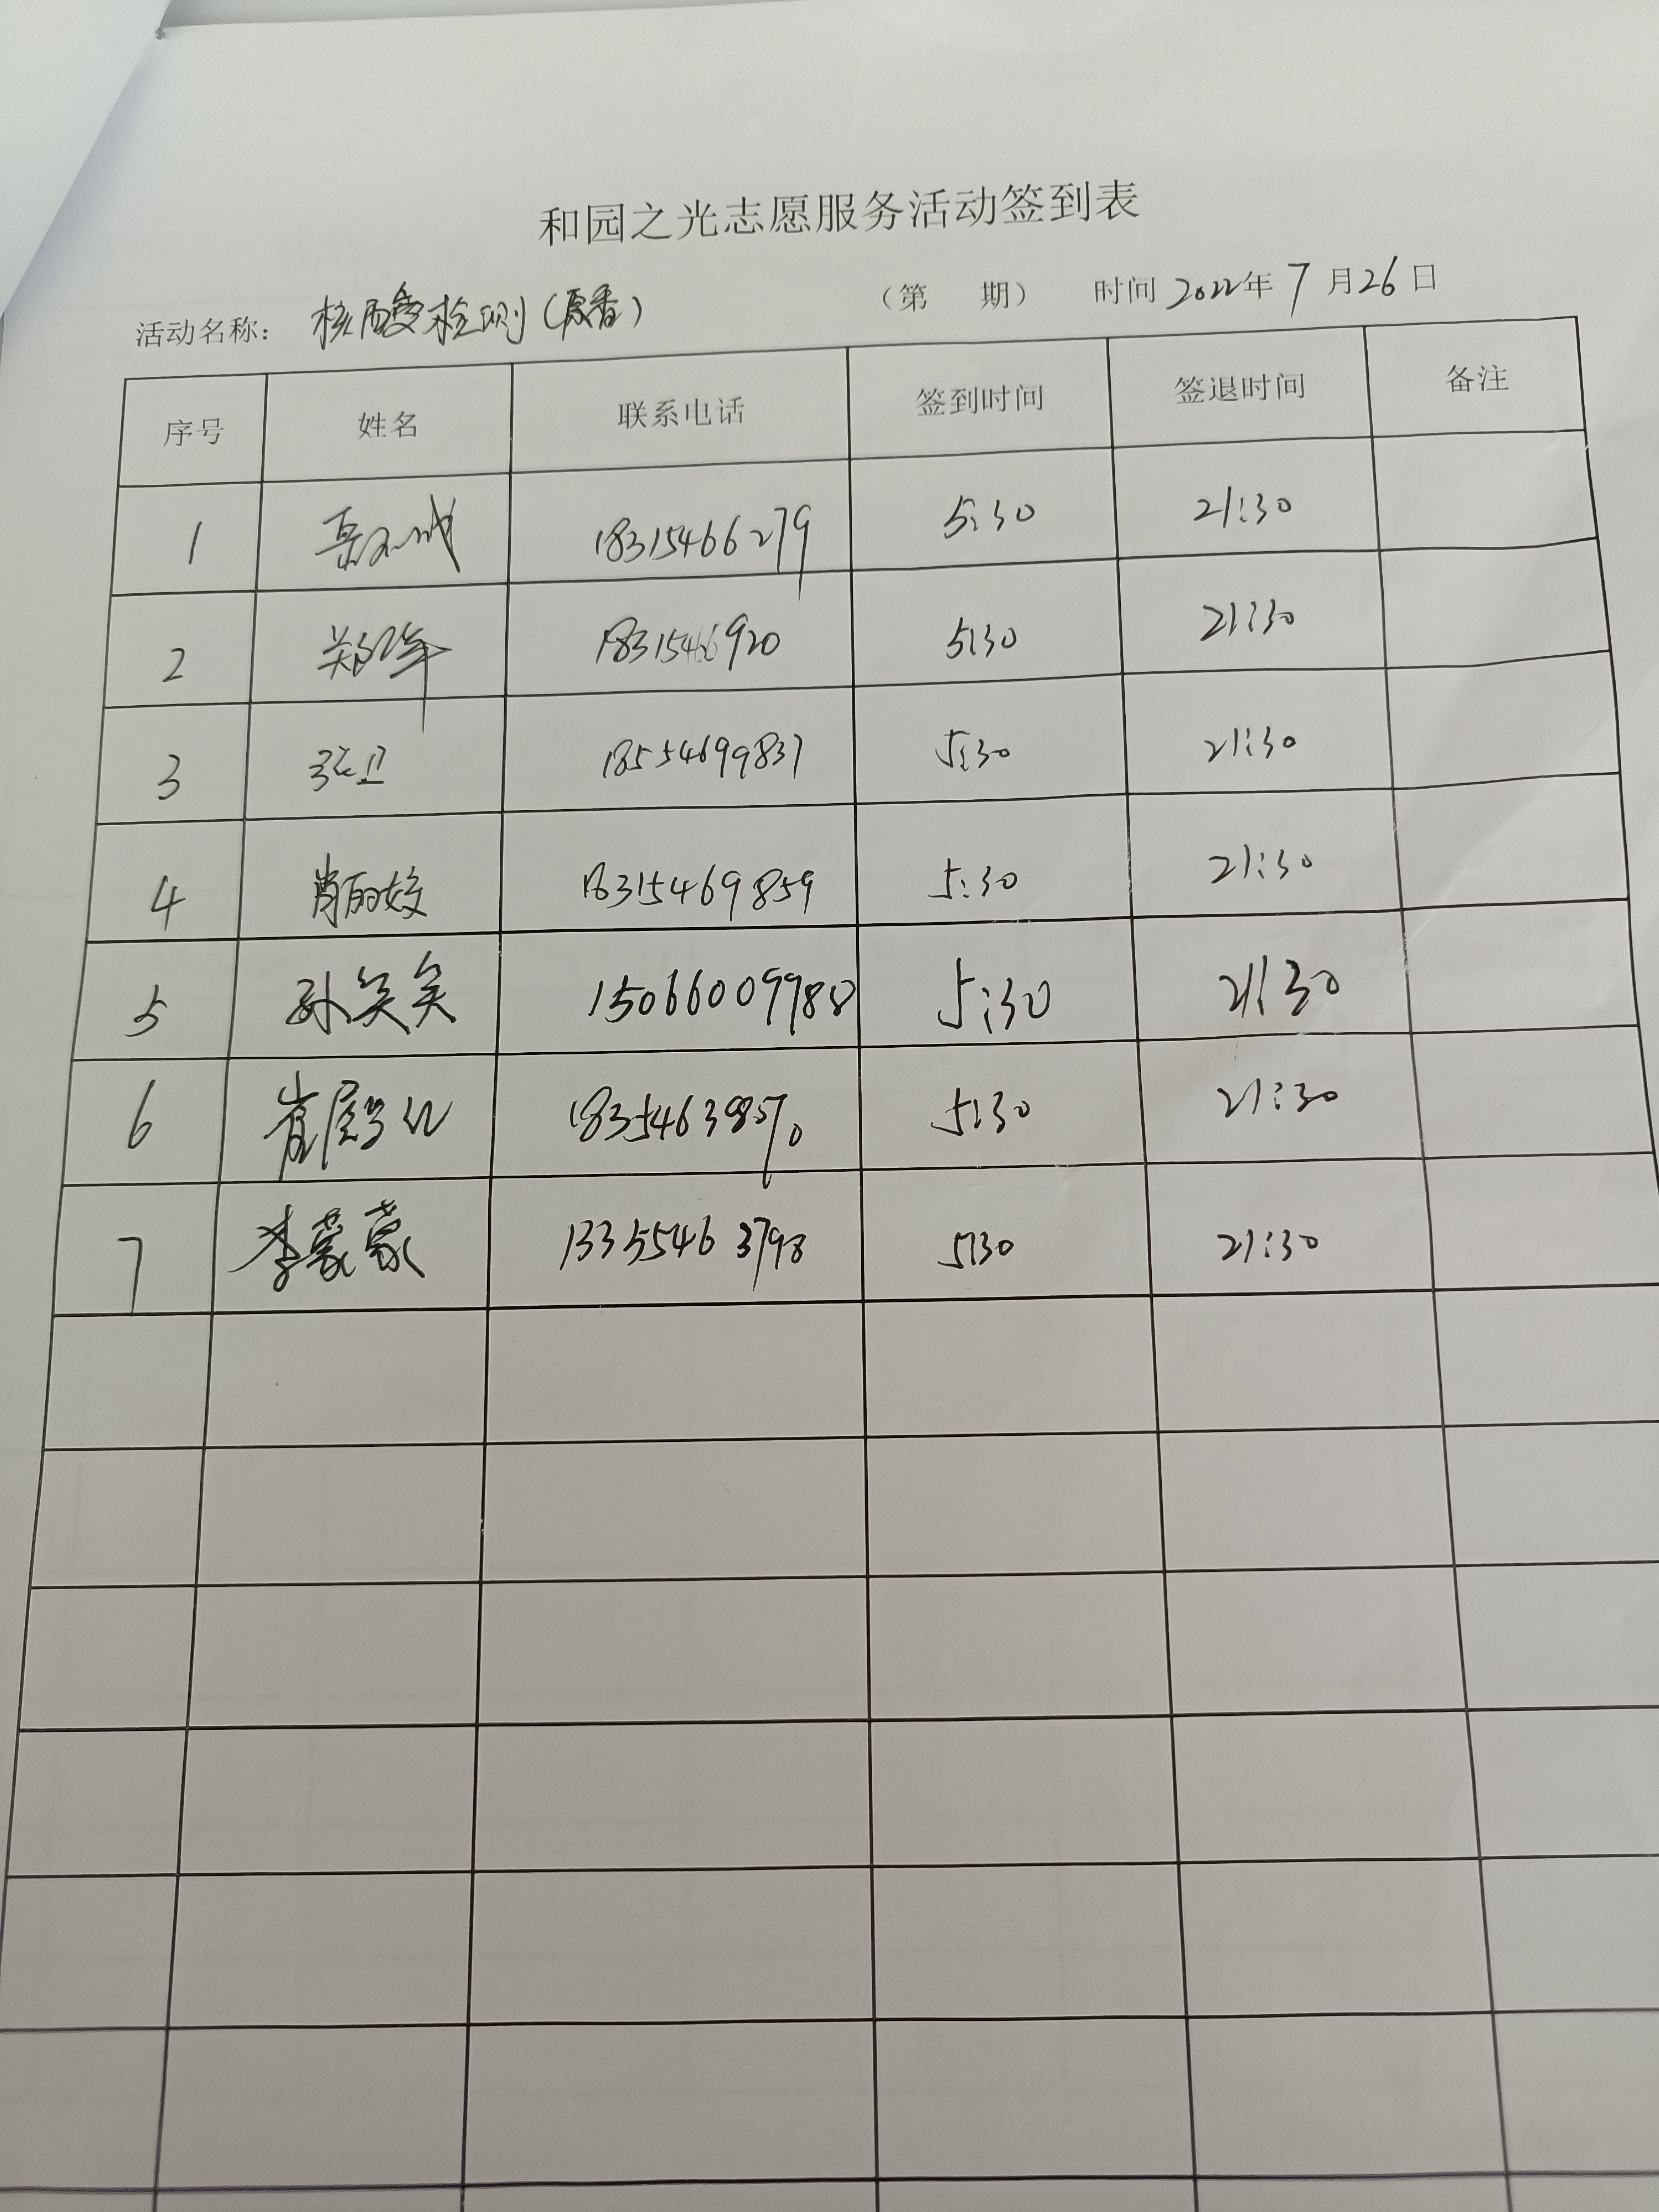 和园之光志愿服务活动签到表
活动名称： 核酸检测（原香） （第 期） 时间 2022年 7 月 26 日
序号 姓名 联系电话 签到时间 签退时间 备注
1 18315466279 5:30 21:30
2 郑军 18315466920 5:30 21:30
3 张卫 18554699837 5:30 21:30
4 肖丽姣 18315469859 5:30 21:30
5 孙笑笑 15066009988 5:30 21:30
6 崔 5:30 21:30
7 李蒙蒙 13355463798 5:30 21:30